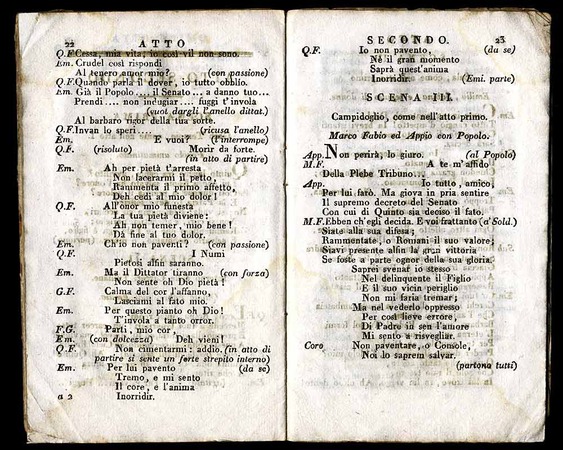 22 ATTO
Q.F. Cessa, mia vita; io così vil non sono.
Em. Crudel così rispondi
Al tenero amor mio? (con passione)
Q.F. Quando parla il dover, io tutto obblìo.
Em. Già il Popolo .... il Senato ... a danno tuo...
Prendi .... non indugiar .... fuggi t'invola
(vuol dargli l'anello dittat.)
Al barbaro rigor della tua sorte.
Q.F. Invan lo speri .... (ricusa l'anello)
Em. E vuoi? (l'interrompe)
Q.F. (risoluto) Morir da forte.
(in atto di partire)
Em. Ah per pietà t'arresta
Non lacerarmi il petto,
Rammenta il primo affetto,
Deh cedi al mio dolor!
Q.F. All'onor mio funesta
La tua pietà diviene:
Ah non temer, mio bene!
Dà fine al tuo dolor.
Em. Ch'io non paventi? (con passione)
Q.F. I Numi
Pietosi alfin saranno.
Em. Ma il Dittator tiranno (con forza)
Non sente oh Dio pietà!
G.F. Calma del cor l'affanno,
Lasciami al fato mio.
Em. Per questo pianto oh Dio!
T'invola a tanto orror.
F.G. Parti, mio cor,
Em. (con dolcezza) Deh vieni!
Q.F. Non cimentarmi: addio. (in atto di
partire si sente un forte strepito interno)
Em. Per lui pavento (da se)
Tremo, e mi sento
Il core, e l'anima
a 2 Inorridir.
SECONDO. 23
Q.F. Io non pavento, (da se)
Nè il gran momento
Saprà quest'anima
Inorridir. (Emi. parte)
SCENA III.
Campidoglio, come nell'atto primo.
Marco Fabio ed Appio con Popolo.
App. Non perirà, lo giuro. (al Popolo)
M.F. A te m'affido
Della Plebe Tribuno...
App. Io tutto, amico,
Per lui farò. Ma giova in pria sentire
Il supremo decreto del Senato
Con cui di Quinto sia deciso il fato.
M.F. Ebben ch'egli decida. E voi frattanto (a' Sold.)
Siate alla sua difesa;
Rammentate, o Romani il suo valore;
Siavi presente alfin la gran vittoria
Se foste a parte ognor della sua gloria.
Saprei svenar io stesso
Nel delinquente il Figlio
E il suo vicin periglio
Non mi faria tremar;
Ma nel vederlo oppresso
Per così lieve errore,
Di Padre in sen l'amore
Mi sento a risvegliar.
Coro Non paventare, o Console,
Noi lo saprem salvar.
(partono tutti)